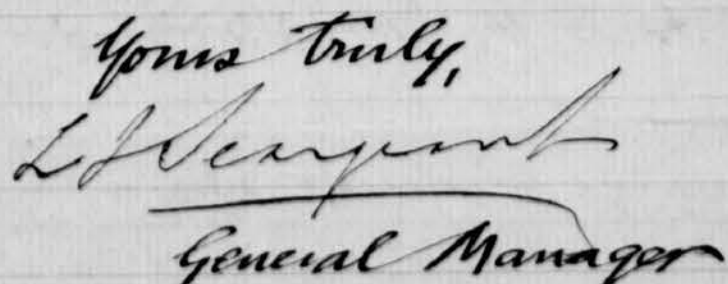 Yours truly,
L J Seargeant
General Manager